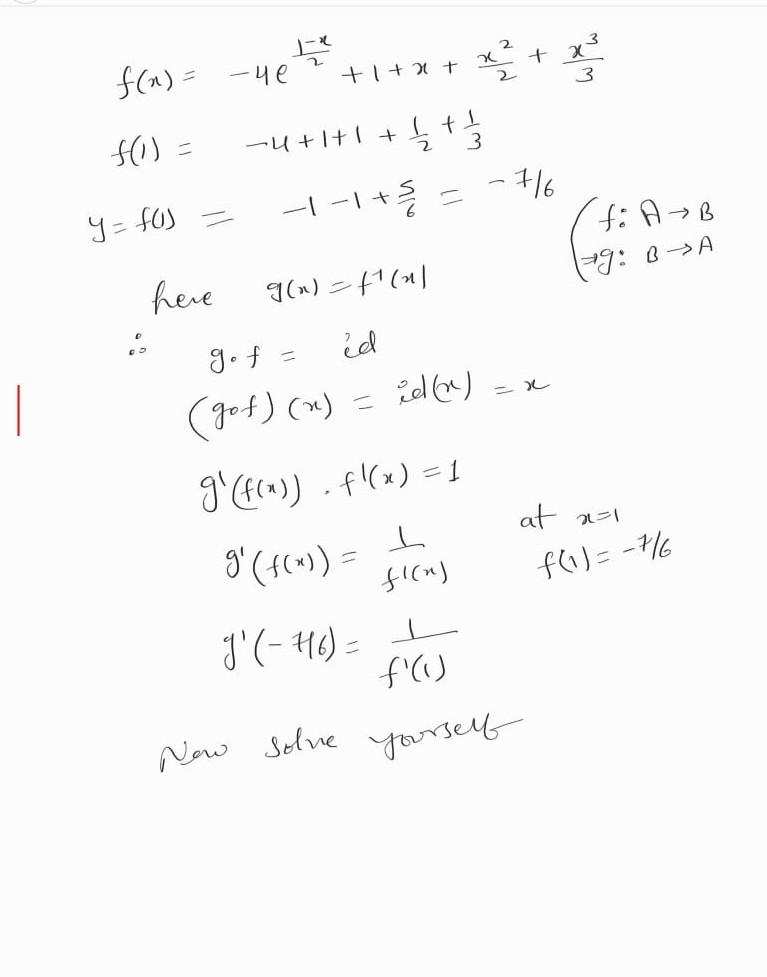 f(x) = -4e^{\frac{1-x}{2}} + 1 + x + \frac{x^2}{2} + \frac{x^3}{3}
f(1) = -4+1+1 + \frac{1}{2} + \frac{1}{3}
y = f(1) = -1 -1 + \frac{5}{6} = -7/6
(f: A → B
⇒ g: B → A
here g(x) = f^{-1}(x)
∴ g∘f = id
(gof)(x) = id(x) = x
g'(f(x)) . f'(x) = 1
g'(f(x)) = \frac{1}{f'(x)}
at x=1
f(1) = -7/6
g'(-7/6) = \frac{1}{f'(1)}
Now solve yourself